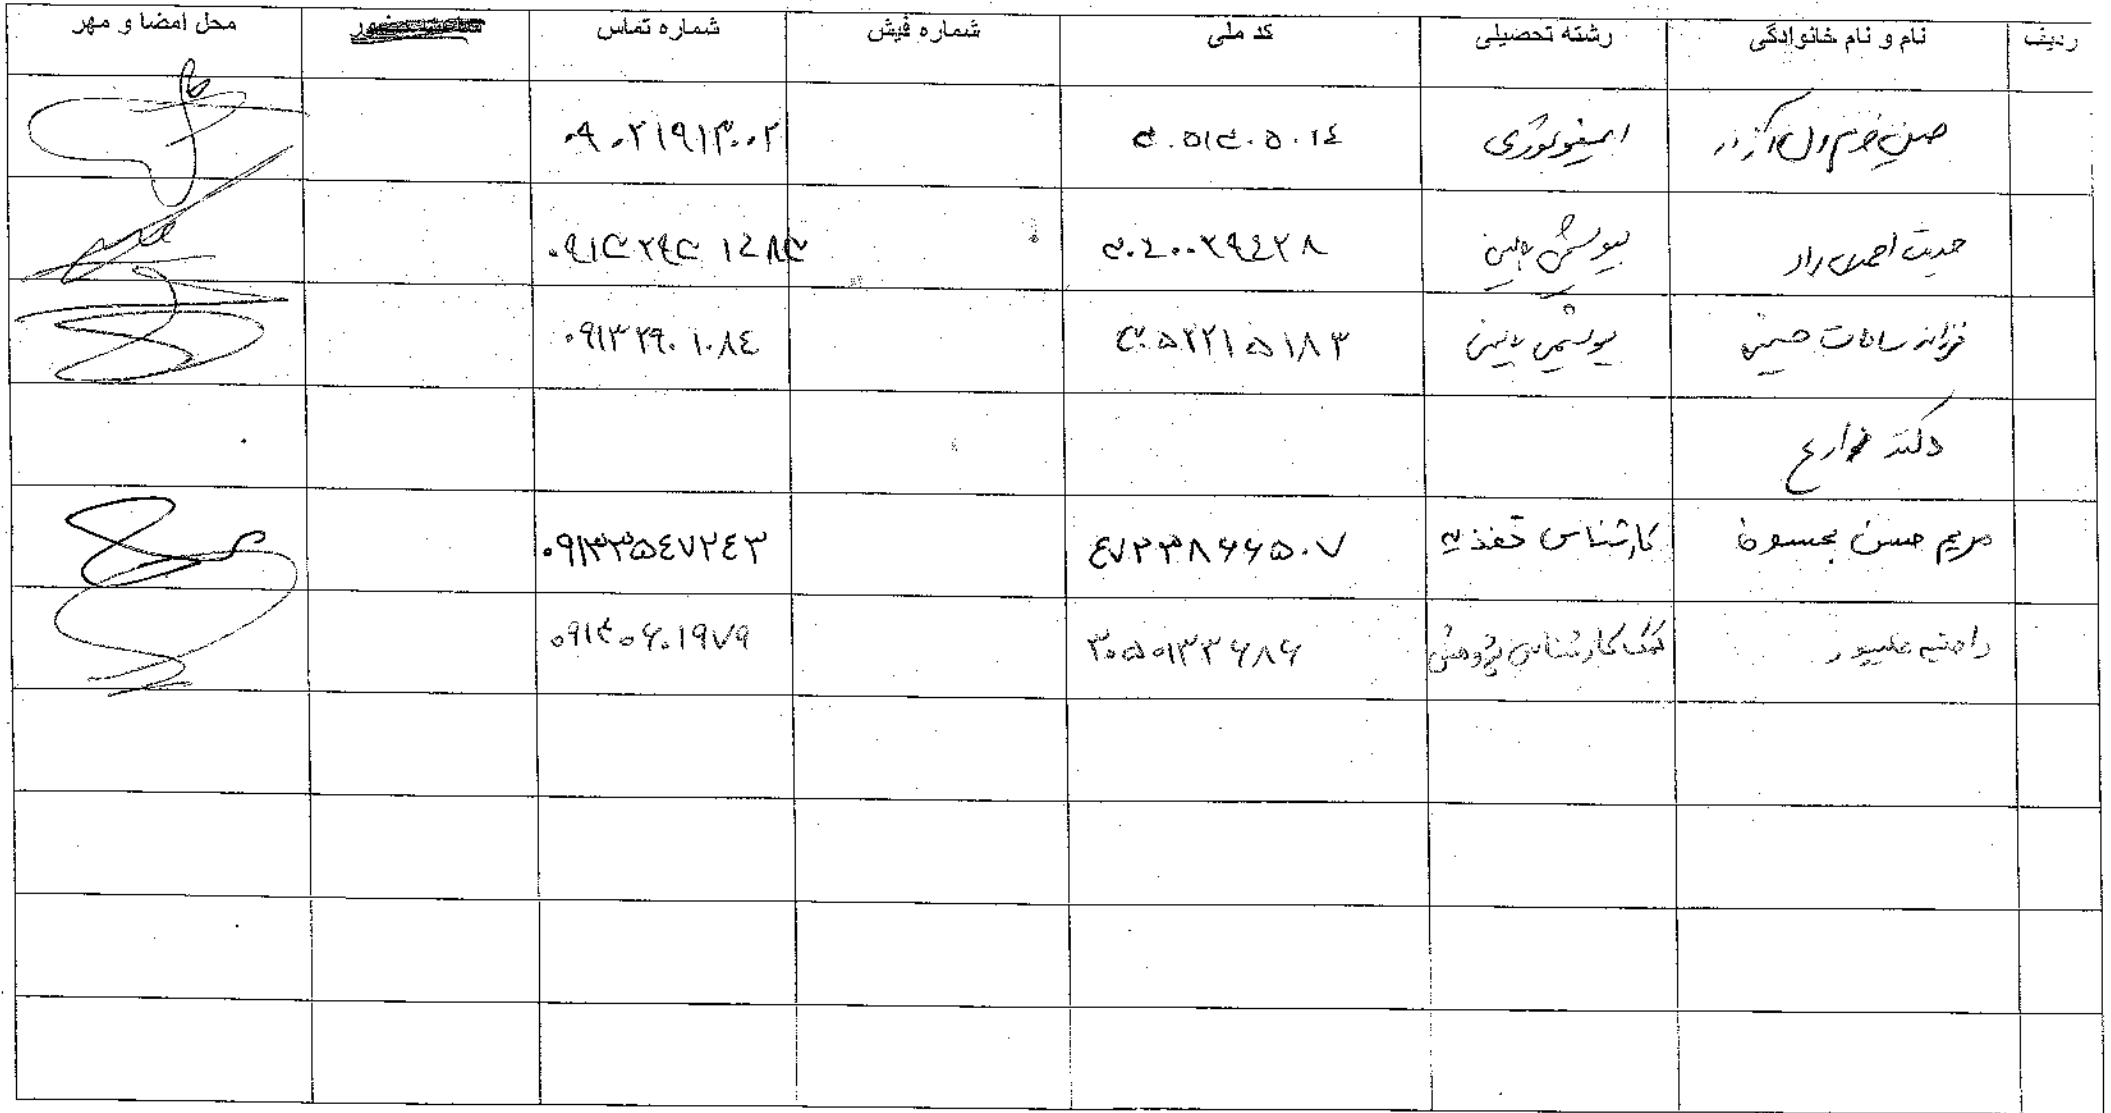 ردیف نام و نام خانوادگی رشته تحصیلی کد ملی شماره فیش شماره تماس محل امضا و مهر
ایمونولوژی ۳۰۵۱۳۰۵۰۱۴ ۰۹۰۲۱۹۱۳۰۰۲
بیوشیمی بالینی ۳۰۴۰۰۲۹۴۲۸ ۰۹۱۳۲۹۳۱۴۸۳
فرزانه سادات حسینی بیوشیمی بالینی ۳۰۵۲۲۱۵۱۸۳ ۰۹۱۳۲۹۰۱۰۸۴
دکتر
مریم حسن کارشناس تغذیه ۰۹۱۳۳۵۴۷۲۴۳
راضیه علیپور کمک کارشناس پژوهش ۳۰۵۰۱۳۳۶۸۶ ۰۹۱۳۰۶۰۱۹۷۹